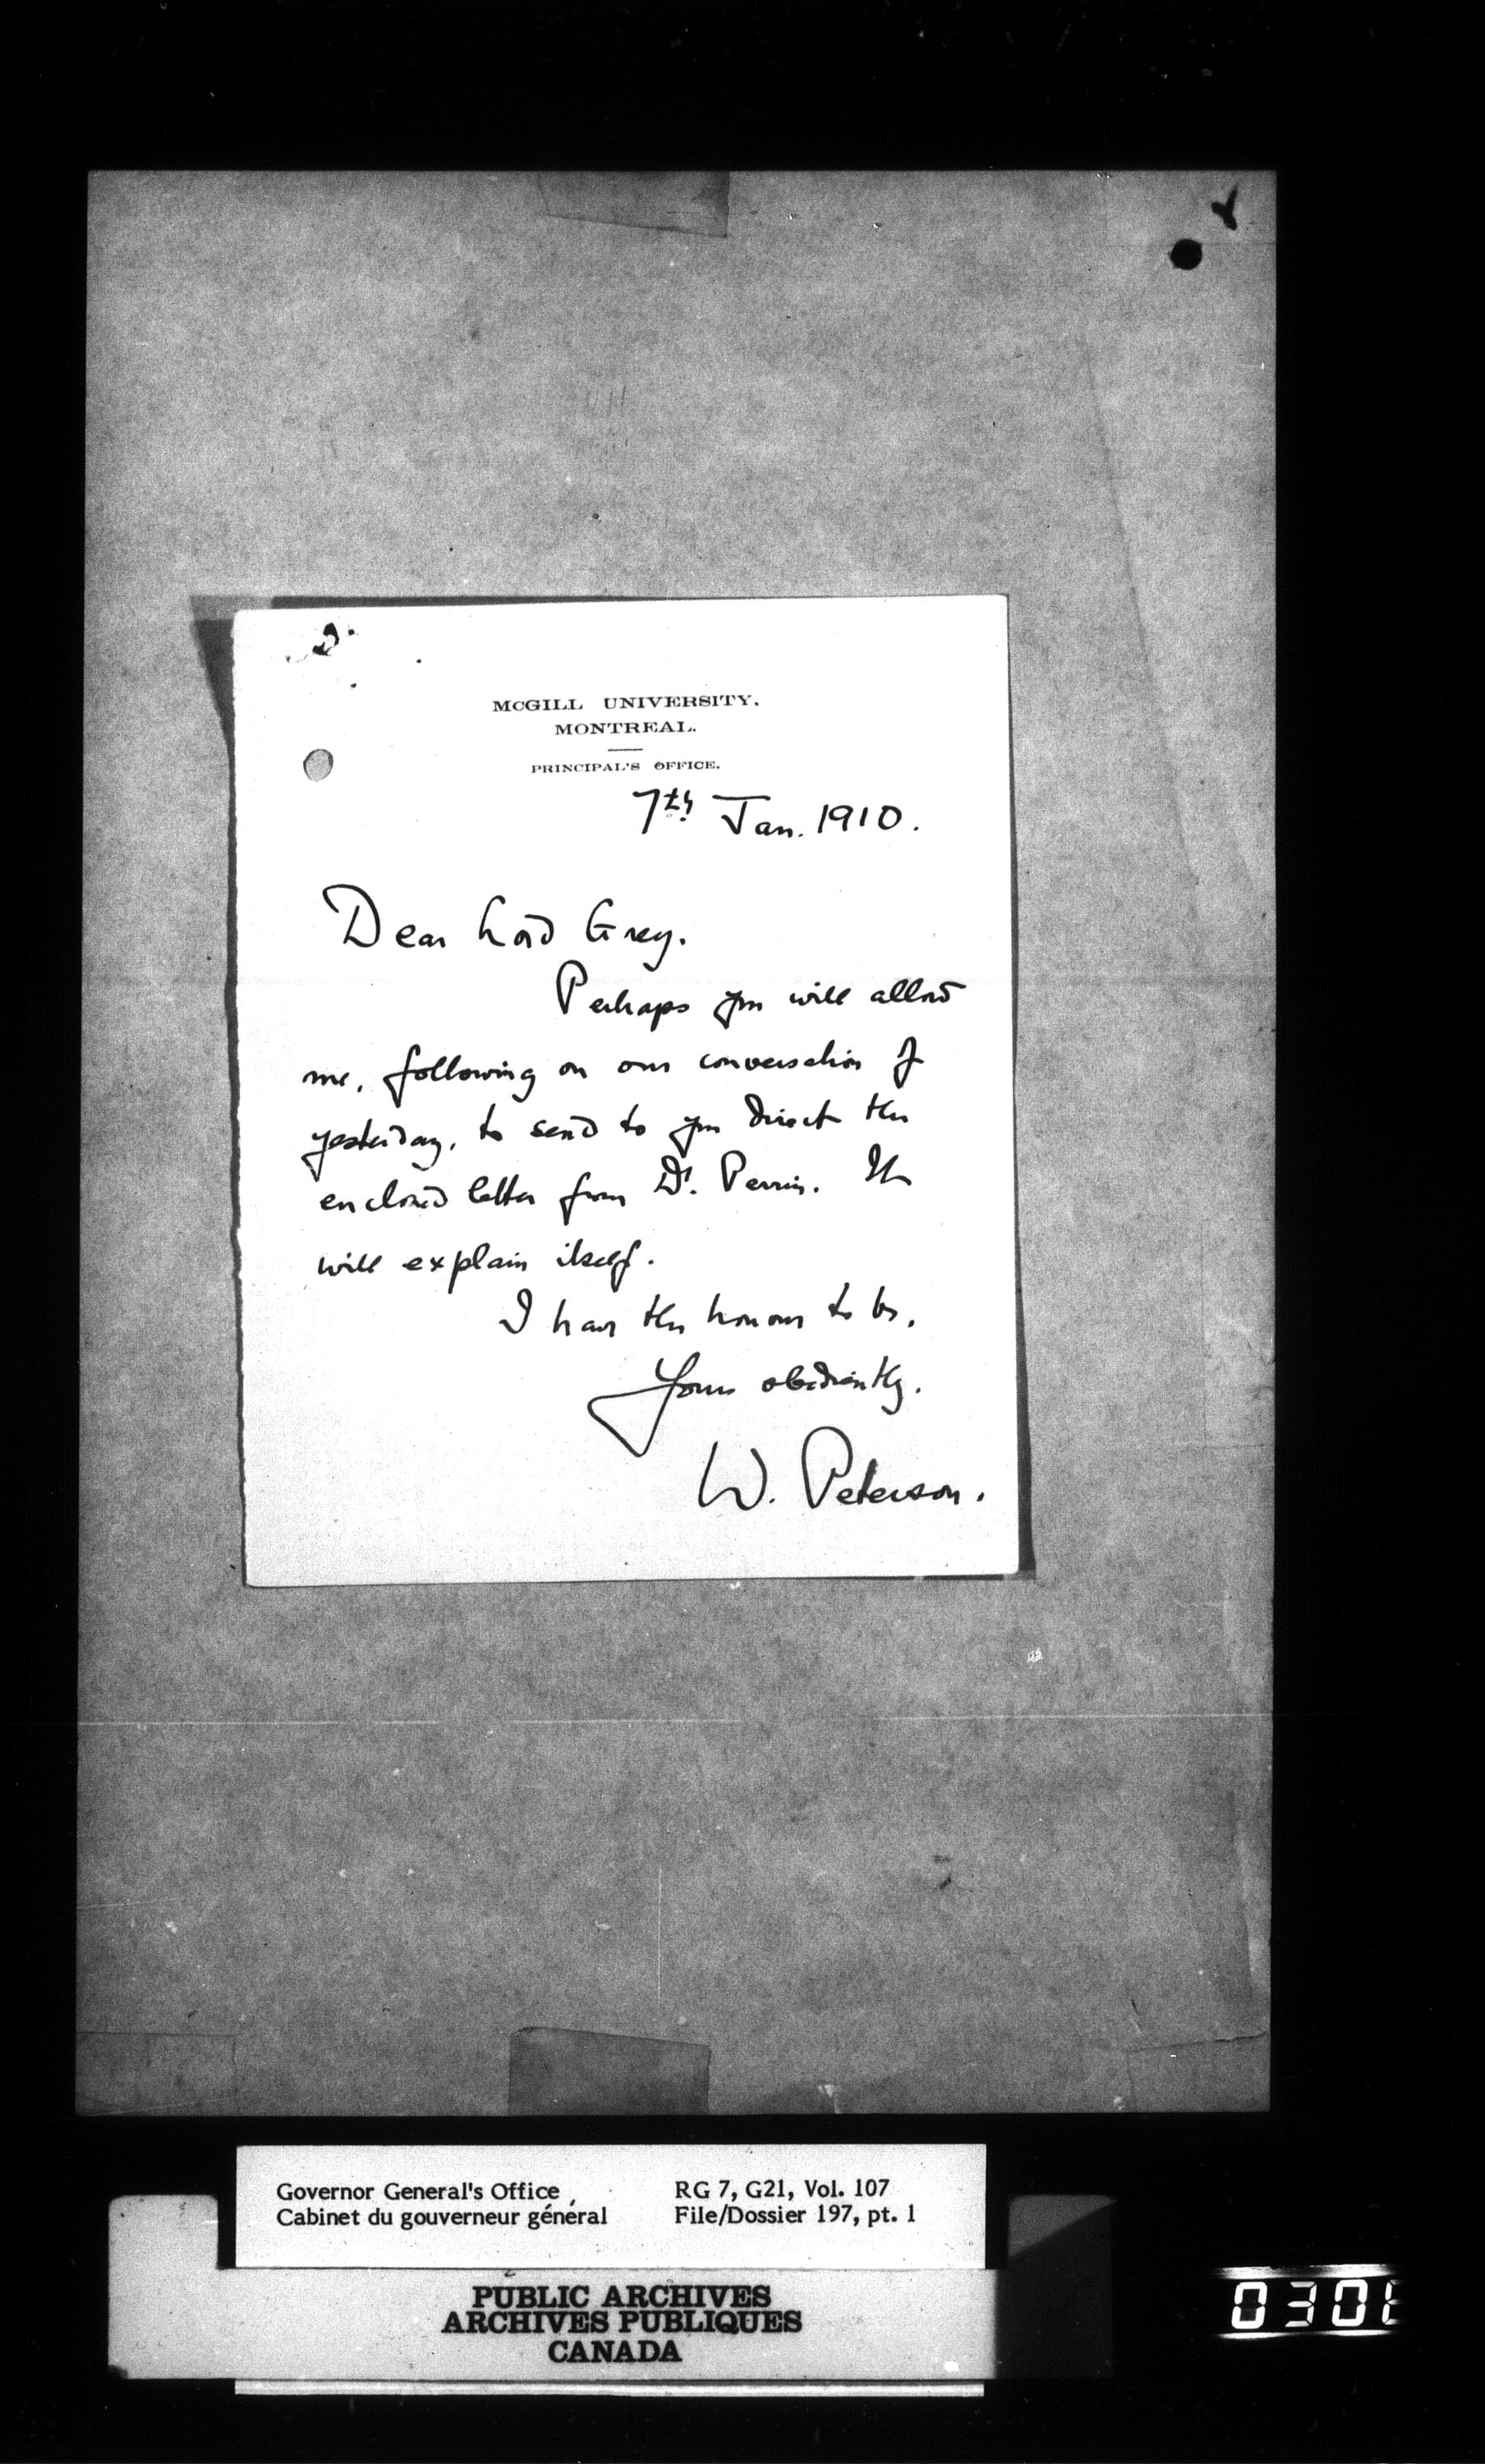 McGILL UNIVERSITY,
MONTREAL.
PRINCIPAL'S OFFICE.
7th Jan. 1910.
Dear Lord Grey.
Perhaps you will allow
me, following on our conversation of
yesterday, to send to you direct the
enclosed letter from Dr. Perrin. It
will explain itself.
I have the honour to be,
Yours obediently.
W. Peterson.
Governor General's Office
Cabinet du gouverneur général
RG 7, G21, Vol. 107
File/Dossier 197, pt. 1
PUBLIC ARCHIVES
ARCHIVES PUBLIQUES
CANADA